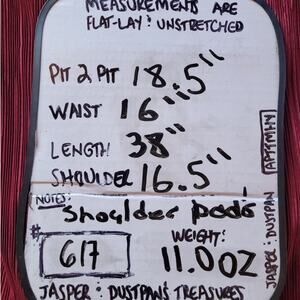 MEASUREMENTS ARE
FLAT-LAY: UNSTRETCHED
PIT 2 PIT 18.5"
WAIST 16"
LENGTH 38"
SHOULDER 16.5"
NOTES:
Shoulder pads
# 617
WEIGHT:
11.0 OZ
JASPER: DUSTPAN'S TREASURES
JASPER: DUSTPAN